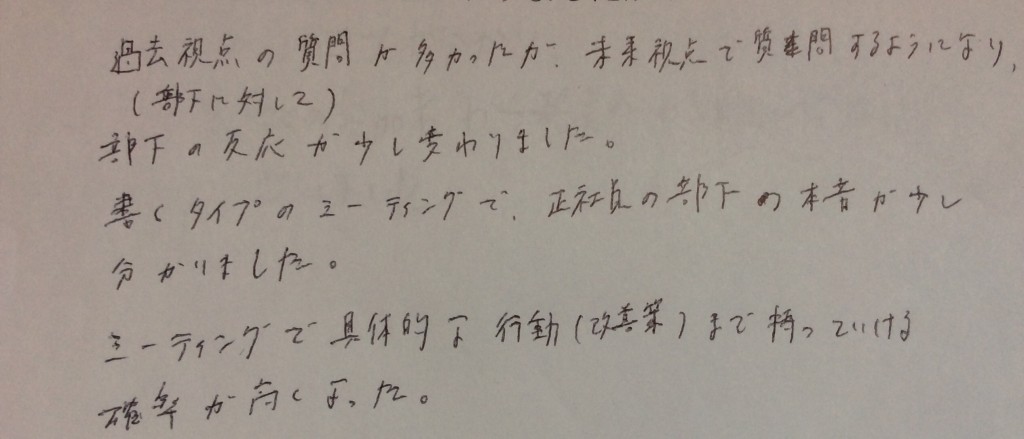 過去視点の質問が多かったが、未来視点で質問するようになり、
(部下に対して)
部下の反応が少し変わりました。
書くタイプのミーティングで、正社員の部下の本音が少し
分かりました。
ミーティングで具体的な行動(改善策)まで持っていける
確率が高くなった。